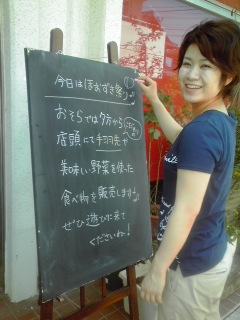 今日はほおずき祭り♪
おそらでは夕方から
店頭にて手羽先や
美味しい野菜を使った
食べ物を販売します♪
ぜひ遊びに来て
くださいね!